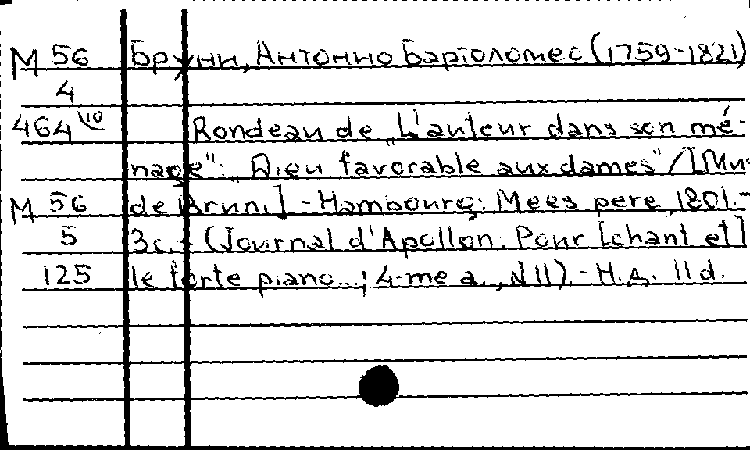 М 56 Бруни, Антонио Бартоломео (1759-1821)
4
464 10 Rondeau de „L'auteur dans son mé-
nage": „Dieu favorable aux dames" / [Mus.
М 56 de Bruni]. - Hambourg: Mees pere, 1801. -
5 3 c. - (Journal d'Apollon. Pour [chant et]
125 le forte piano...; 4-me a., N 11). - Н.д. 11d.